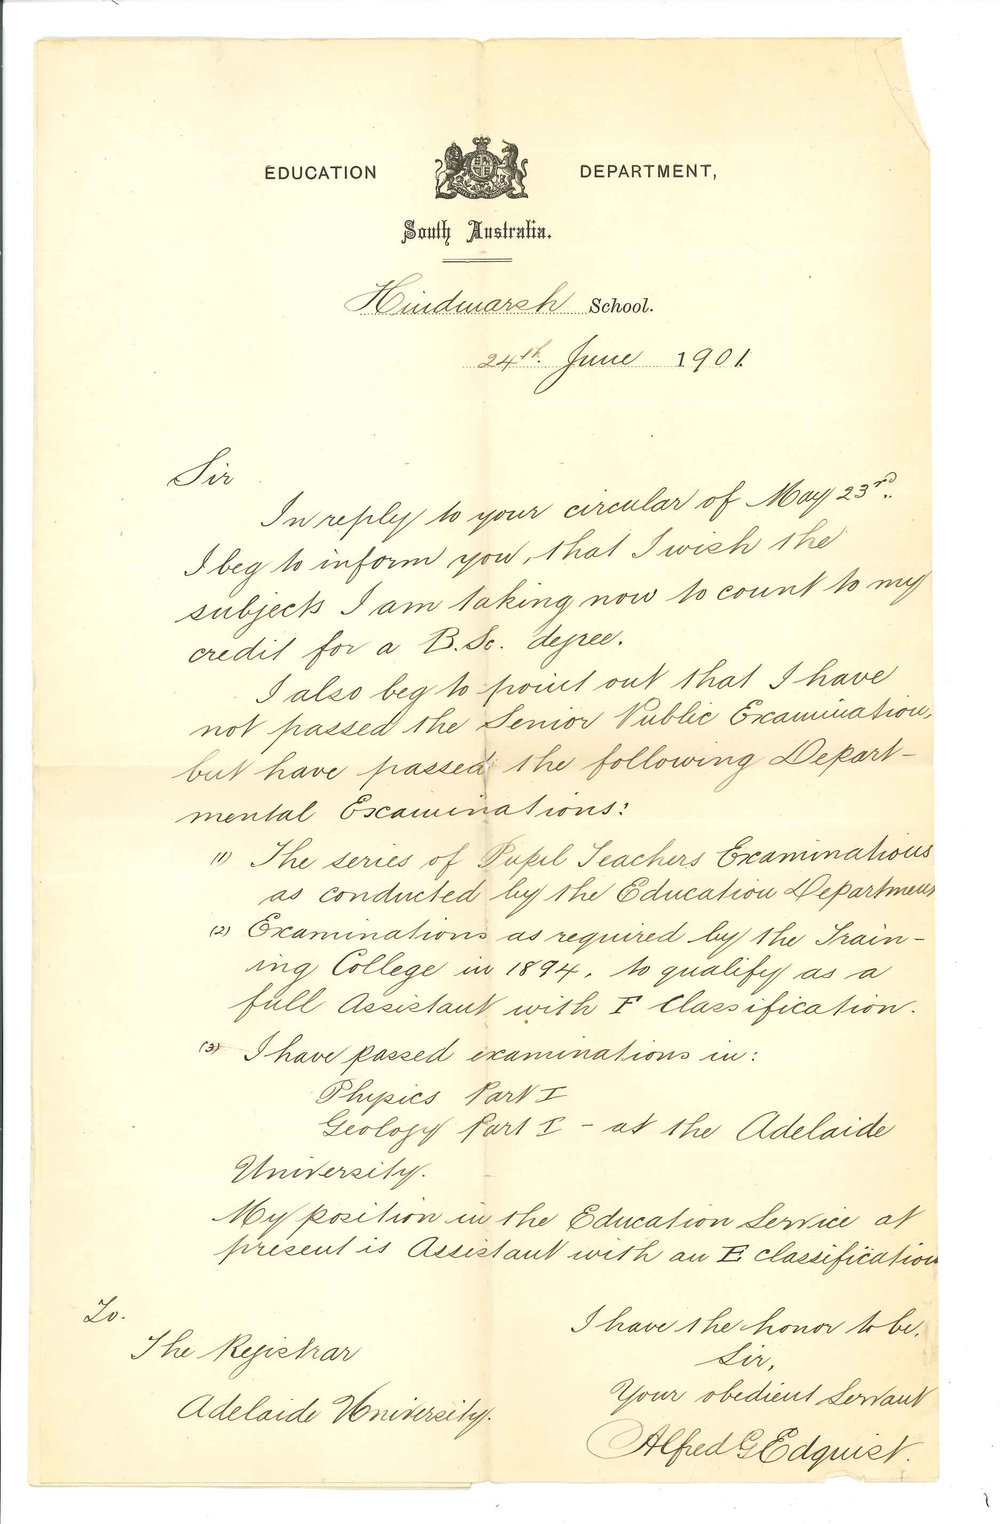 EDUCATION DEPARTMENT,
South Australia.
Hindmarsh School.
24th. June 1901.
Sir
In reply to your circular of May 23rd.
I beg to inform you, that I wish the
subjects I am taking now to count to my
credit for a B.Sc. degree.
I also beg to point out that I have
not passed the Senior Public Examination,
but have passed the following Depart-
mental Examinations:
(1) The series of Pupil Teachers Examinations
as conducted by the Education Department
(2) Examinations as required by the Train-
ing College in 1894. to qualify as a
full Assistant with F Classification.
(3) I have passed examinations in:
Physics Part I
Geology Part I - at the Adelaide
University.
My position in the Education Service at
present is Assistant with an E classification
I have the honor to be,
Sir,
Your obedient Servant
Alfred G Edquist.
To.
The Registrar
Adelaide University.